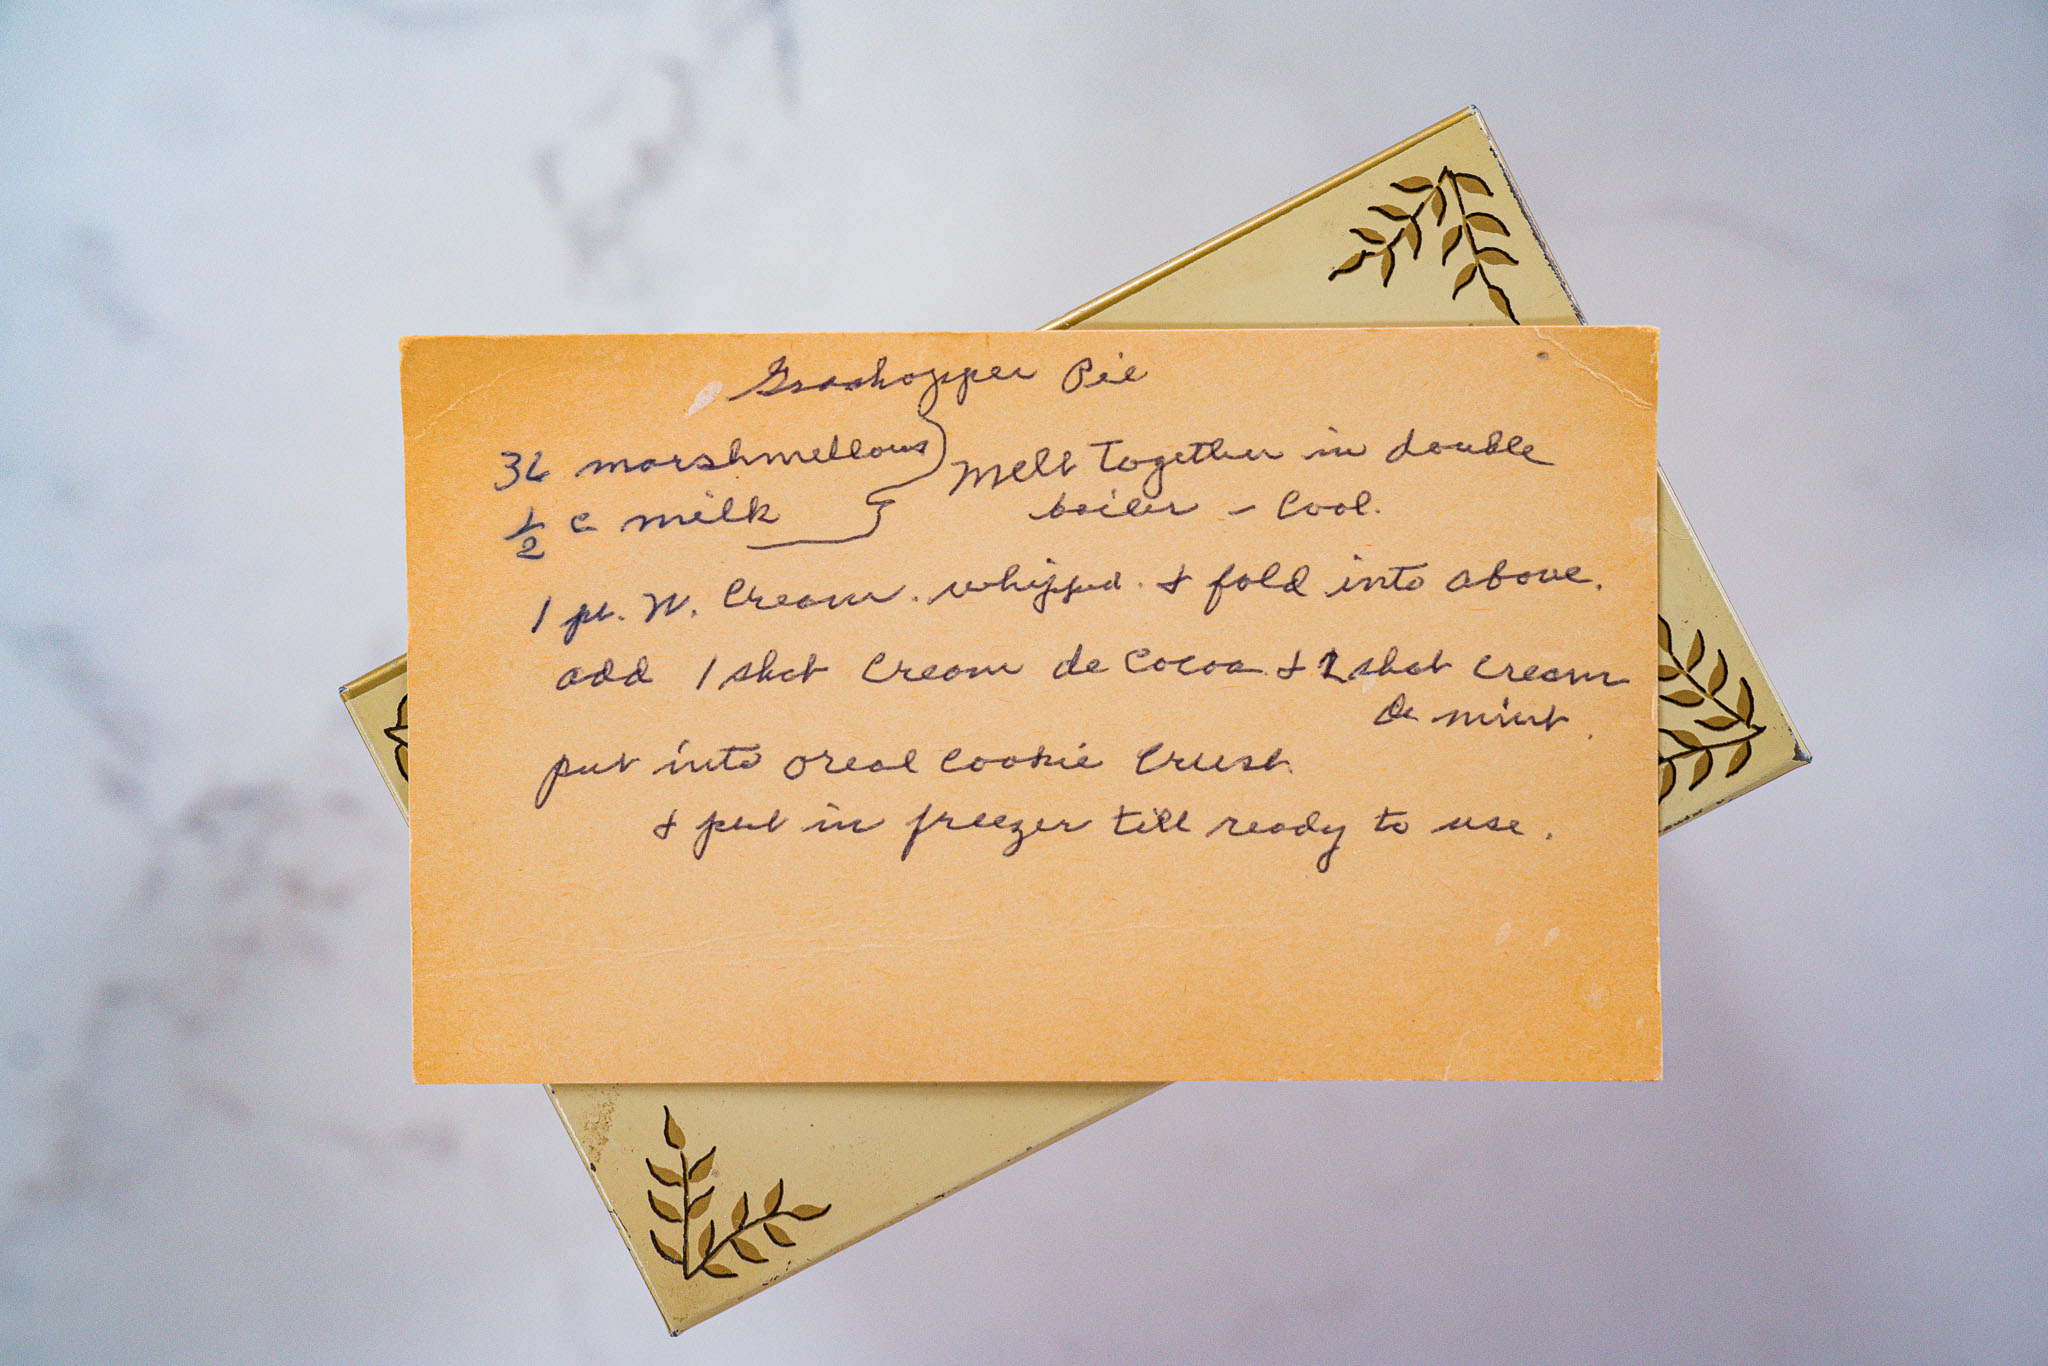 Grasshopper Pie
36 marshmellows
½ c milk
Melt together in double
boiler - Cool.
1 pt. W. Cream. whipped. & fold into above.
add 1 shot Cream de Cocoa & 2 shot Cream
de mint.
put into oreal Cookie Crust.
& put in freezer till ready to use.